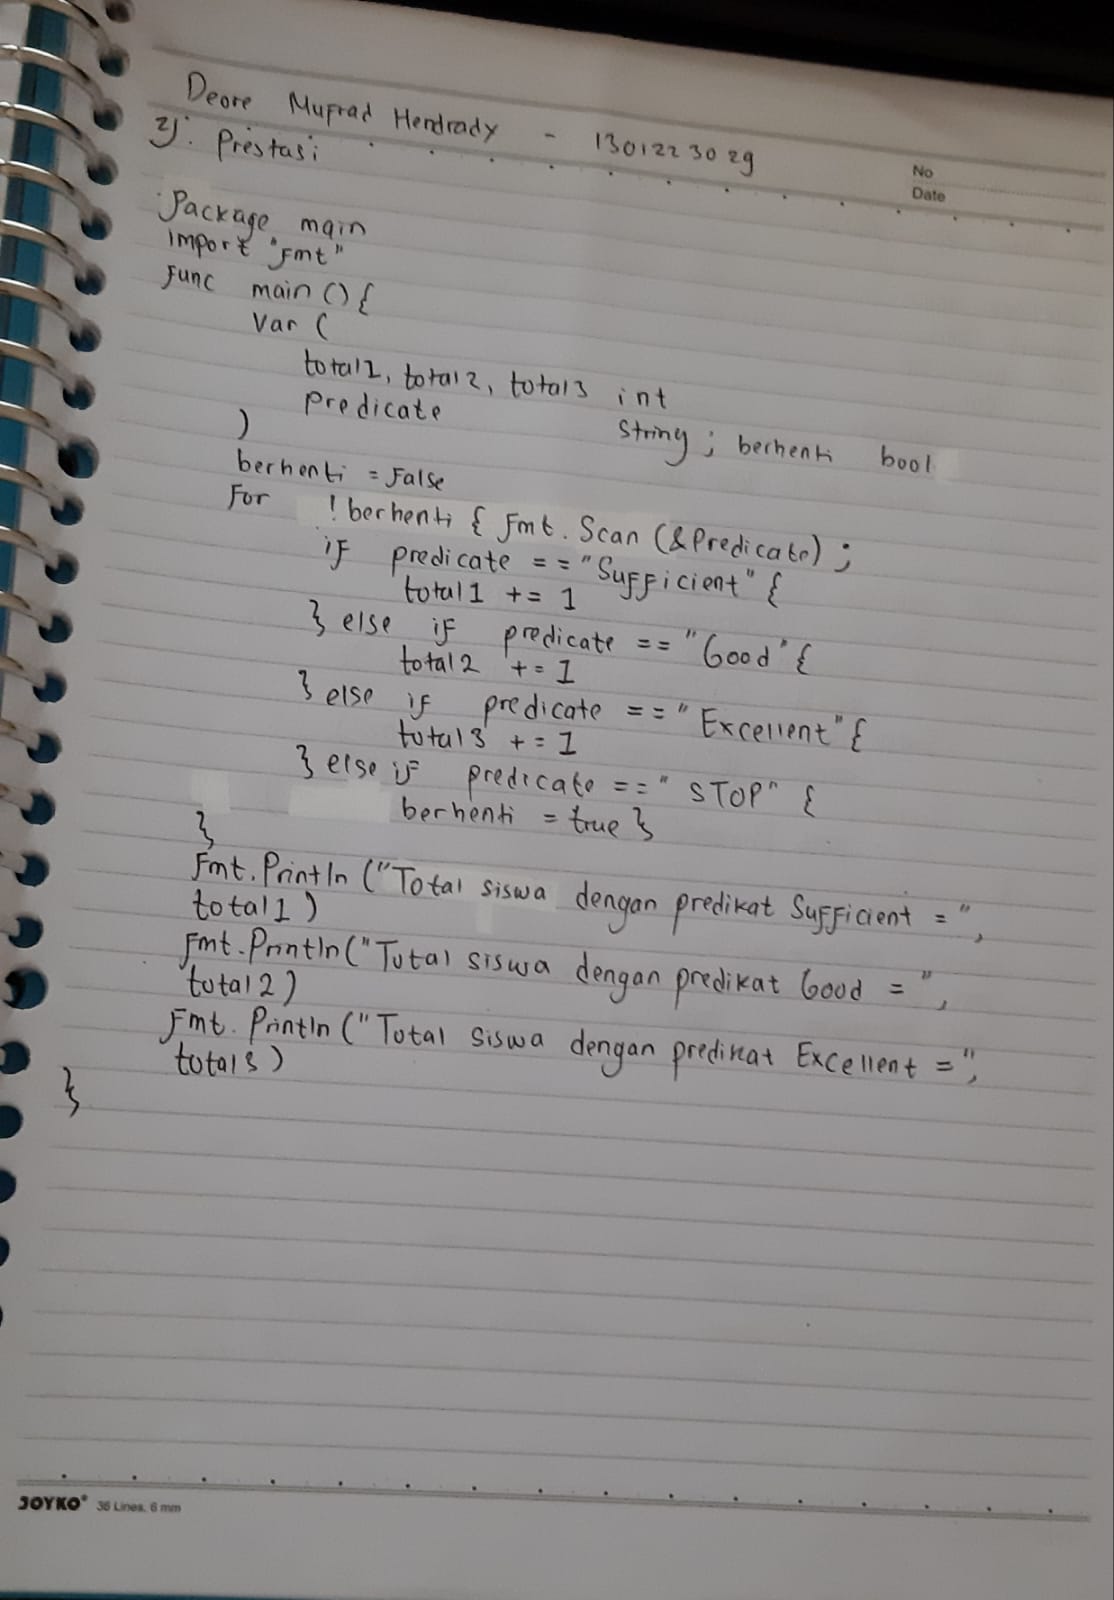 Deore Mufrad Hendrady - 1301223029
2). Prestasi
No
Date
Package main
import "fmt"
func main () {
var (
total1, total2, total3 int
predicate string ; berhenti bool
)
berhenti = False
For ! berhenti { fmt. Scan (&Predicate) ;
if predicate == "Sufficient" {
total1 += 1
} else if predicate == "Good" {
total2 += 1
} else if predicate == "Excellent" {
total3 += 1
} else if predicate == "STOP" {
berhenti = true }
}
Fmt. Println ("Total siswa dengan predikat Sufficient = ",
total1 )
Fmt. Println ("Total siswa dengan predikat Good = ",
total2 )
Fmt. Println ("Total siswa dengan predikat Excellent = ",
total3 )
}
JOYKO® 36 Lines, 6 mm